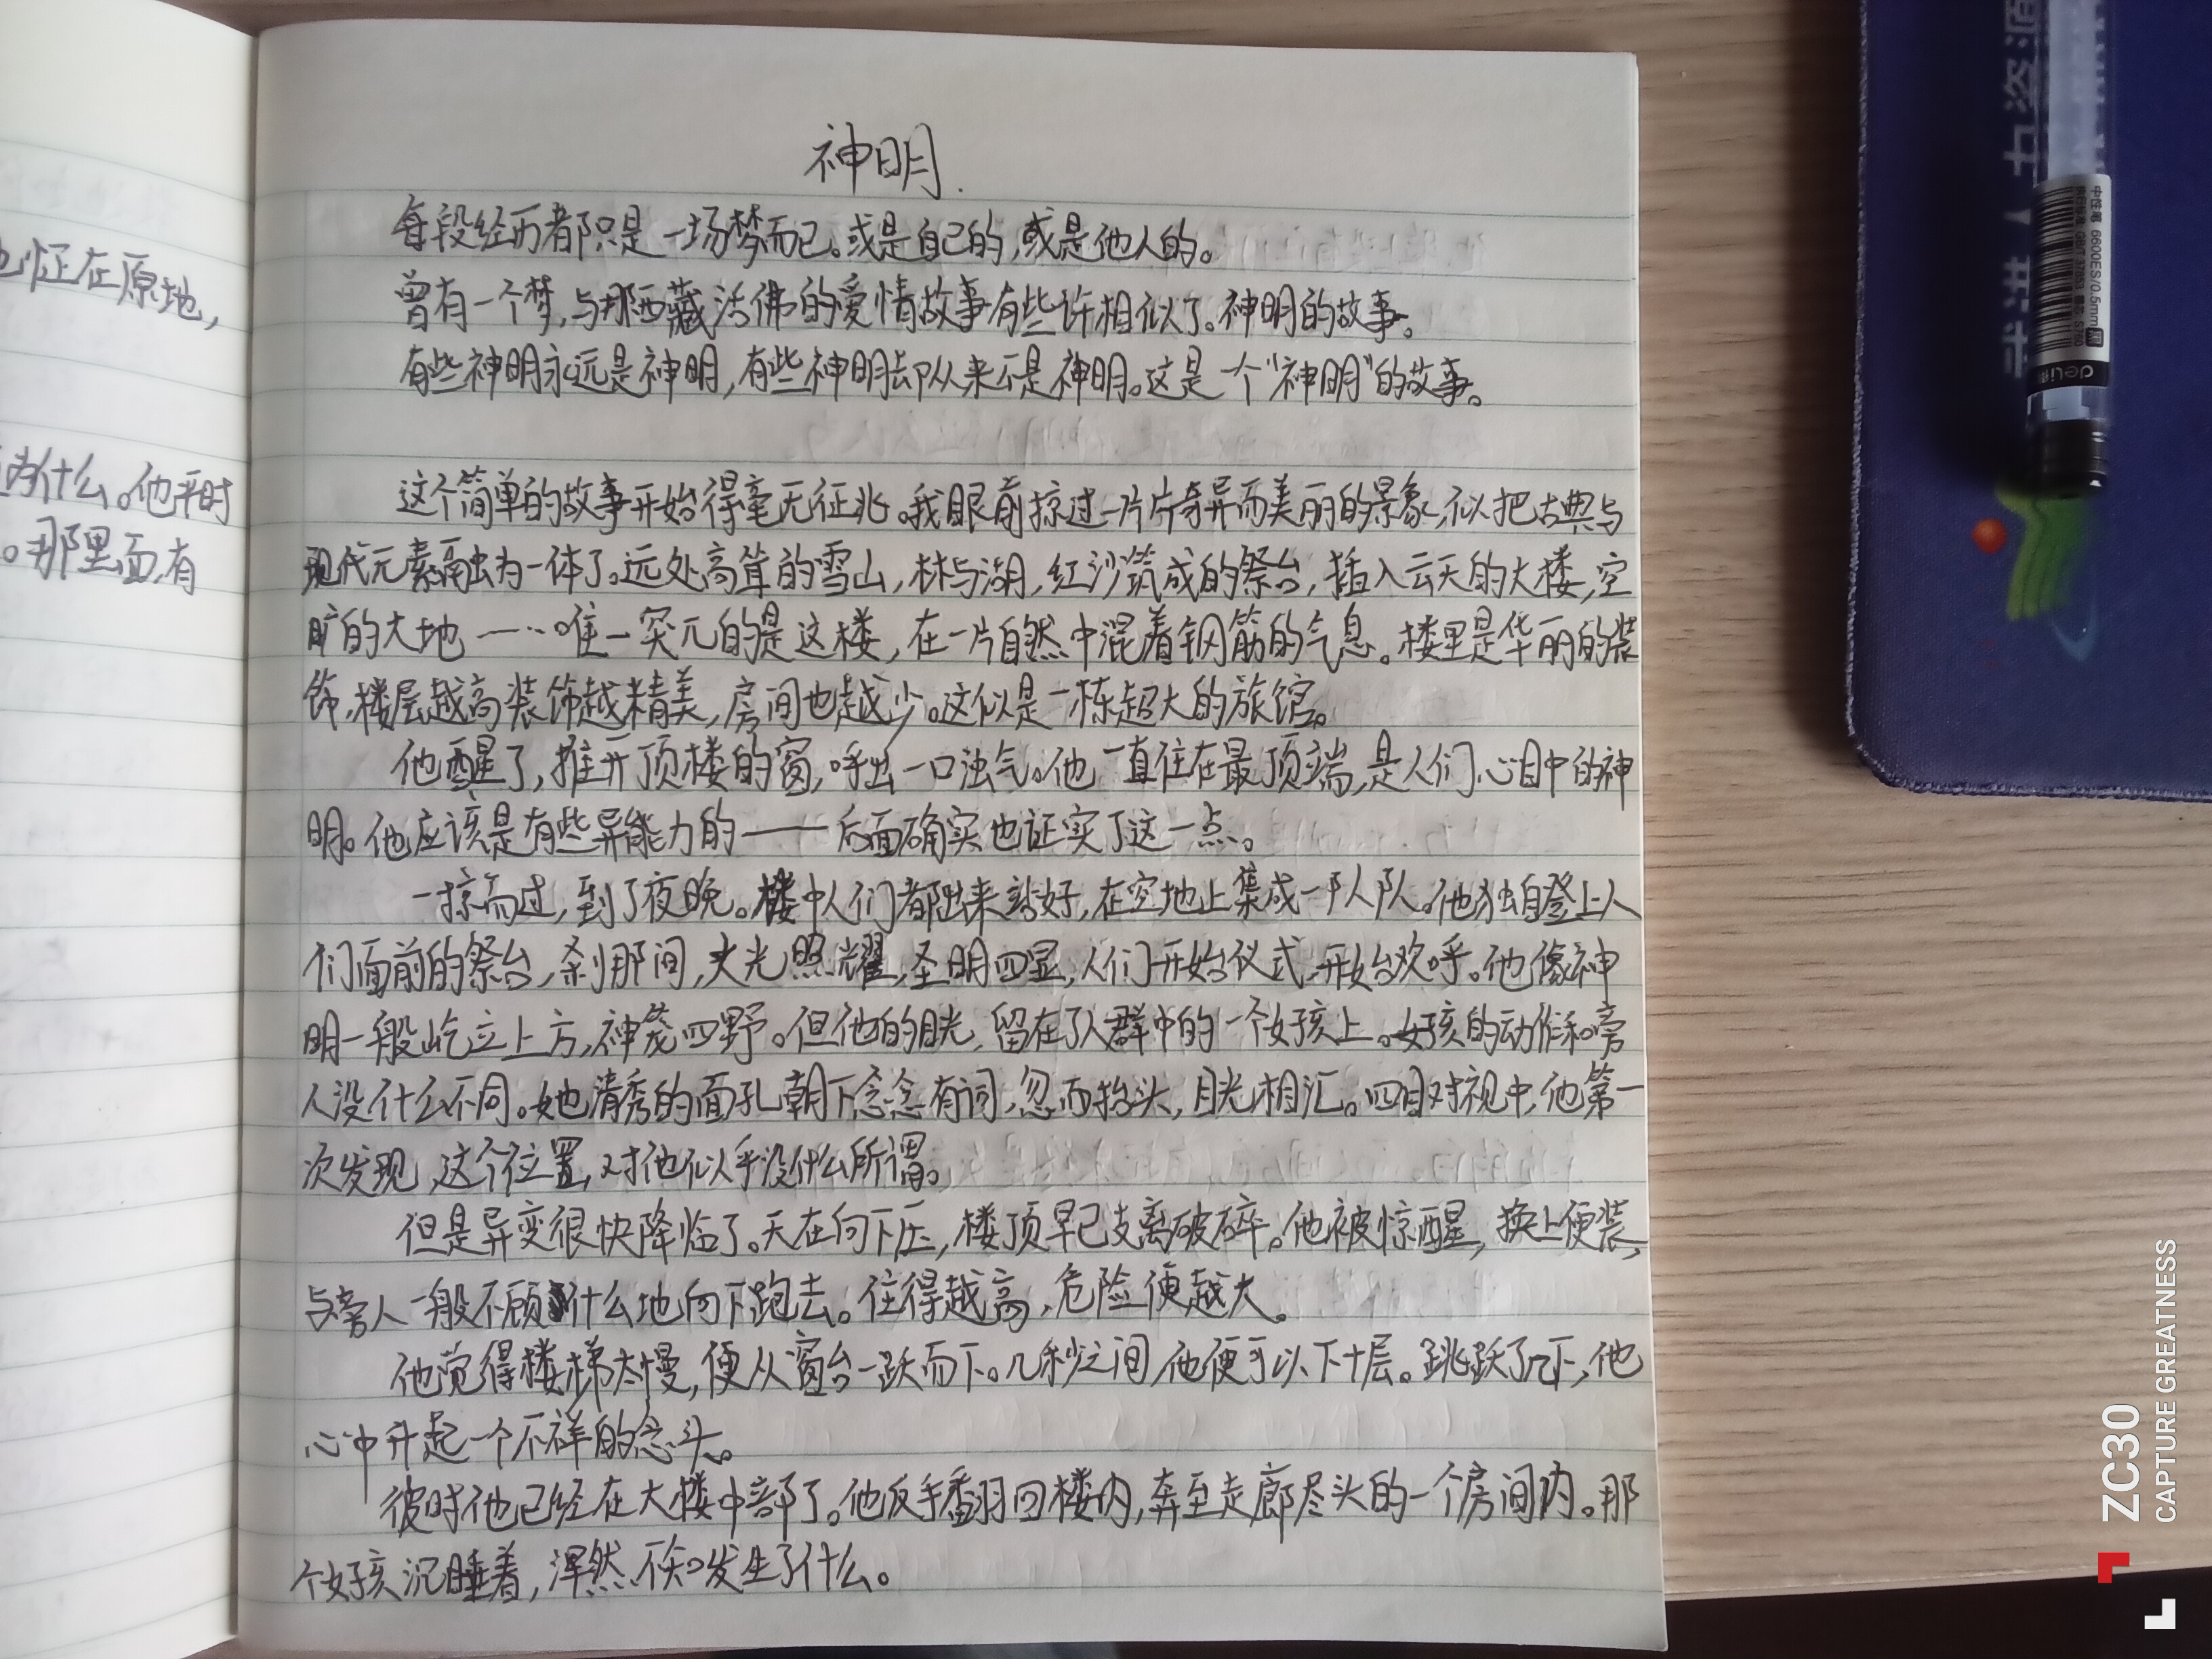 也怔在原地，
为什么。他平时
。那里面,有
神明.
每段经历都只是一场梦而已。或是自己的,或是他人的。
曾有一个梦,与那西藏活佛的爱情故事有些许相似了。神明的故事。
有些神明永远是神明,有些神明却从来不是神明。这是一个“神明”的故事。
这个简单的故事开始得毫无征兆。我眼前掠过一片片奇异而美丽的景象,似把古典与
现代元素融为一体了。远处高耸的雪山,林与湖,红沙筑成的祭台,插入云天的大楼,空
旷的大地……唯一突兀的是这楼,在一片自然中混着钢筋的气息。楼里是华丽的装
饰,楼层越高装饰越精美,房间也越少。这似是一栋超大的旅馆。
他醒了,推开顶楼的窗,呼出一口浊气。他一直住在最顶端,是人们心目中的神
明。他应该是有些异能力的——后面确实也证实了这一点。
一掠而过,到了夜晚。楼中人们都出来站好,在空地上集成一队队。他独自登上人
们面前的祭台,刹那间,火光照耀,圣明四显,人们开始仪式,开始欢呼。他像神
明一般屹立上方,神笼四野。但他的目光,留在了人群中的一个女孩上。女孩的动作和旁
人没什么不同。她清秀的面孔朝下念念有词,忽而抬头,目光相汇。四目对视中,他第一
次发现,这个位置,对他似乎没什么所谓。
但是异变很快降临了。天在向下压,楼顶早已支离破碎。他被惊醒,换上便装,
与旁人一般不顾什么地向下跑去。住得越高,危险便越大。
他觉得楼梯太慢,便从窗台一跃而下。几秒之间,他便可以下十层。跳跃了几下,他
心中升起一个不祥的念头。
彼时他已经在大楼中部了。他反手翻回楼内,奔至走廊尽头的一个房间内。那
个女孩沉睡着,浑然不知发生了什么。
中性笔 6600ES/0.5mm 黑
deli
ZC30
CAPTURE GREATNESS